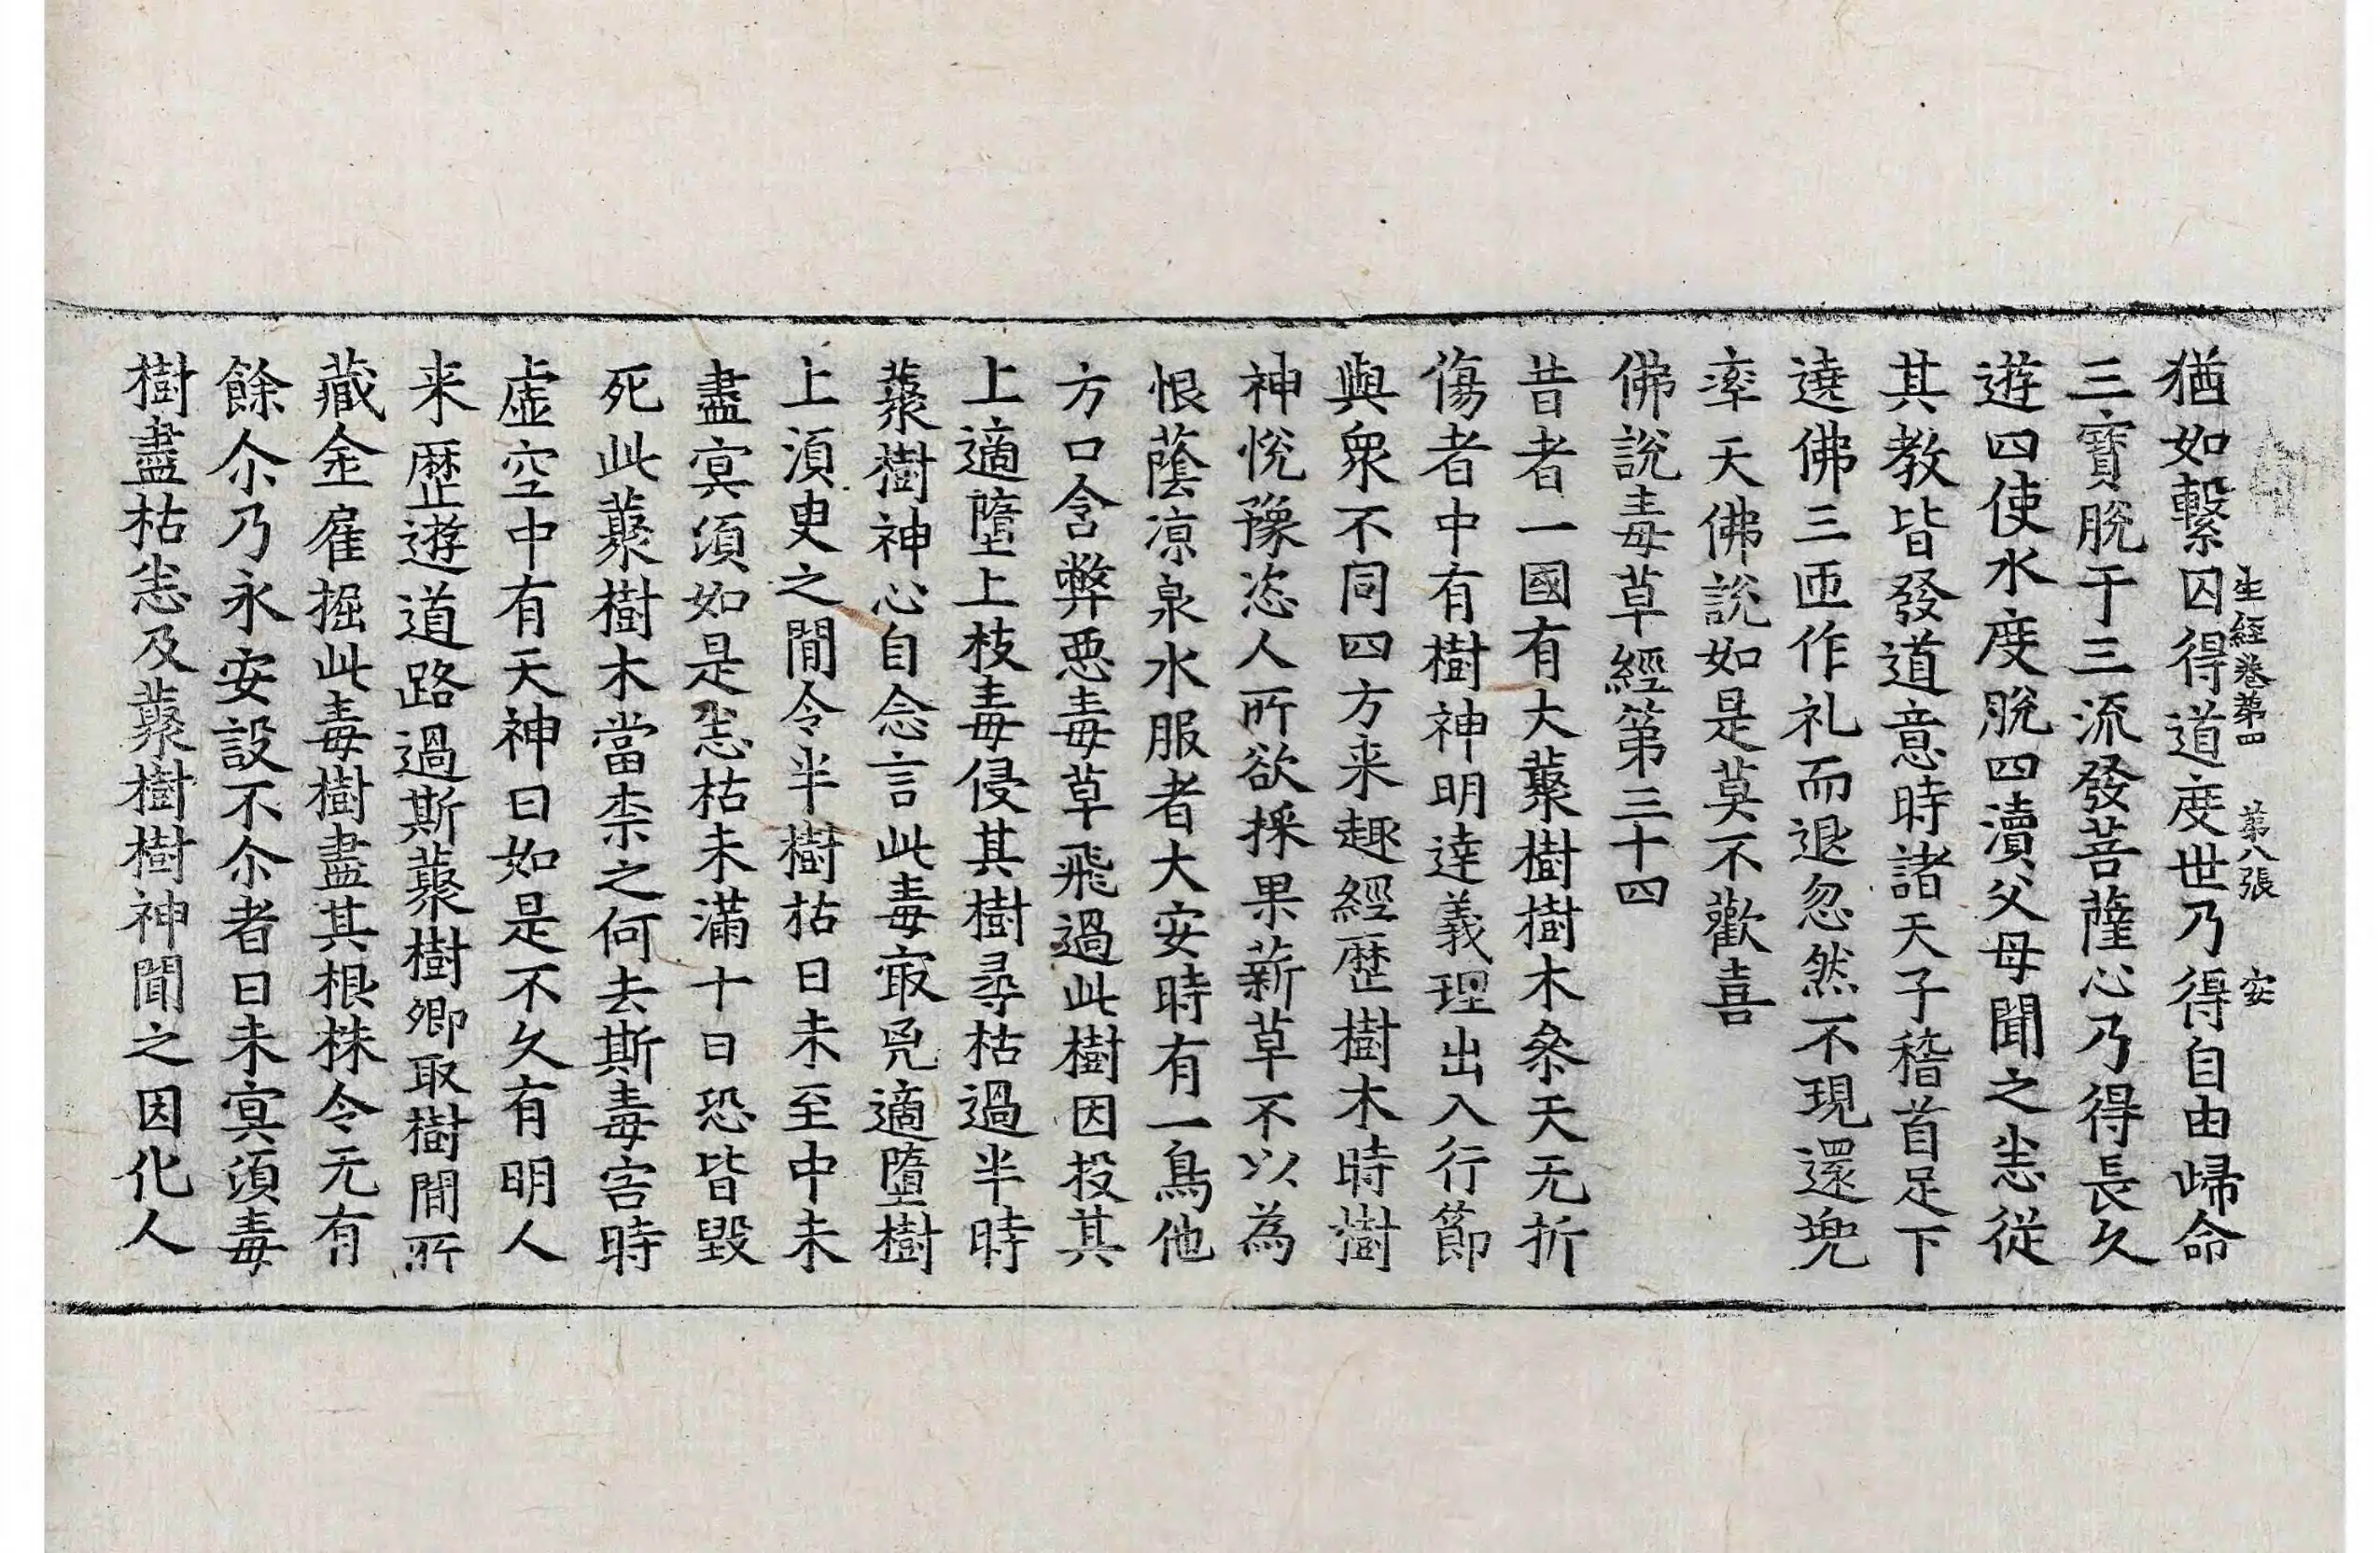 生經卷第四 第八張 安
猶如繫囚得道度世乃得自由歸命
三寶脫于三流發菩薩心乃得長久
遊四使水度脫四瀆父母聞之恙從
其教皆發道意時諸天子稽首足下
遶佛三匝作礼而退忽然不現還兠
率天佛說如是莫不歡喜
佛說毒草經第三十四
昔者一國有大藂樹樹木叅天无折
傷者中有樹神明達義理出入行節
與衆不同四方来趣經歷樹木時樹
神悅豫恣人所欲採果薪草不以為
恨蔭凉泉水服者大安時有一鳥他
方口含弊惡毒草飛過此樹因投其
上適墮上枝毒侵其樹尋枯過半時
藂樹神心自念言此毒㝡凶適墮樹
上湏臾之閒令半樹枯日未至中未
盡㝠湏如是恙枯未滿十日恐皆毀
死此藂樹木當柰之何去斯毒害時
虛空中有天神曰如是不久有明人
来歷遊道路過斯藂樹卿取樹閒所
藏金雇掘此毒樹盡其根株令无有
餘尒乃永安設不尒者日未㝠湏毒
樹盡枯恙及藂樹樹神聞之因化人